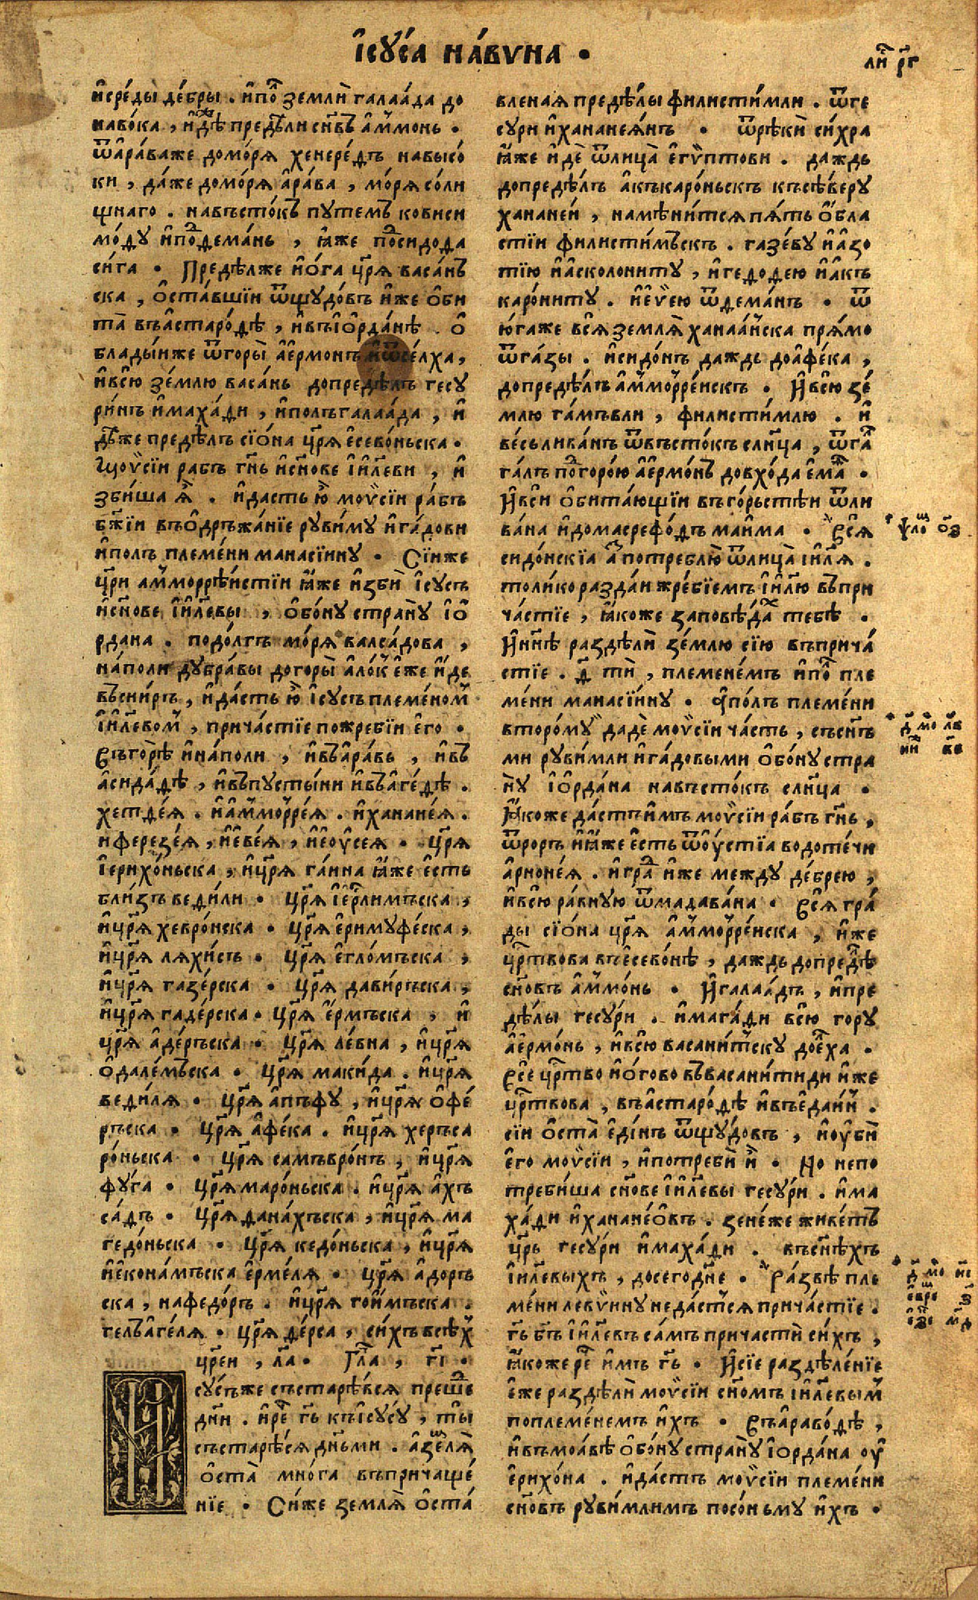 І҆сꙋ́са на́вѵна .
ли҃ рг҃
и҆среды̀ де́бры . и҆по҃ землѝ галаа́да до
наво́ка , и҆дѣ́же предѣ́ли сн҃въ а҆ммонь .
ѿа҆ра́важе домо́рѧ хенере́дъ навысо́
ки , да́же домо́рѧ а҆ра́ва , мо́рѧ со́ли
щнаго . навъсто́къ пꙋтемъ ковиси
мо́дꙋ и҆пⷪ҇дема́нь , ꙗ҆́же пⷪ҇сидода
си́га . Предѣ́лже и҆о́га цр҃ѧ васа́нъ
ска , ѡ҆ста́вшїи ѿщꙋдо́въ и҆́же ѻ҆би
та̀ въа҆старо́дѣ , и҆въі҆ѻ҆рда́нѣ . ѻ҆
блады́иже ѿгоры̀ а҆е҆рмонъ и҆ѿсе́лха ,
и҆всю̀ зе́млю васа́нь допредѣ́лъ гесꙋ
ри́нъ и҆маха́ди , и҆полъгалаа́да , и҆
дѣ́же предѣ́лъ сїѡ́на цр҃ѧ е҆сево́ньска .
Моѵ҆си́и рабъ гн҃ь и҆сн҃ове і҆и҃леви , и҆
зби́ша ѧ҆̀ . и҆дастъ ю҆̀ моѵ҆си́и ра́бъ
бж҃їи въѻ҆дръжа́нїе рꙋви́мꙋ и҆га́дови
и҆полъ племе́ни манасїинꙋ . Сїи́же
цр҃и а҆мморре́истїи ꙗ҆́же и҆збѝ І҆исꙋсъ
и҆сн҃ове і҆и҃левы , ѻ҆бо́нꙋ странꙋ̀ і҆ѻ҆
рдана . подо́лгъ мо́рѧ валса́дова ,
на́поли дꙋбра́вы догоры̀ а҆ло́къ е҆́же и҆де
въси́иръ , и҆дастъ ю҆̀ І҆исꙋсъ племе́номъ
і҆и҃левомъ , прича́стїе пожре́бїи е҆го̀ .
Въгорѣ̀ и҆на́поли , и҆въа҆ра́вь , и҆въ
а҆сида́дѣ , и҆въпꙋсты́ни и҆въаге́дѣ .
хетде́ѧ . и҆а҆ммо́рреѧ . и҆хана́неѧ .
и҆ферезе́ѧ , и҆е҆ве́ѧ , и҆і҆еѹ҆сеѧ . цр҃ѧ
і҆ерихо́ньска , и҆цр҃ѧ га́ина ꙗ҆́же е҆́сть
бли́зъ веди́ли . цр҃ѧ і҆ер҃лимъска ,
и҆цр҃ѧ хевро́нска . цр҃ѧ е҆римꙋфе́ска ,
и҆цр҃ѧ лѧхи́съ . цр҃ѧ е҆гло́мъска ,
и҆цр҃ѧ газе́рска . цр҃ѧ дави́ръска ,
и҆цр҃ѧ гаде́рска . цр҃ѧ е҆́рмъска , и҆
цр҃ѧ а҆де́ръска . цр҃ѧ ле́вна , и҆цр҃ѧ
ѻ҆дале́мъска . цр҃ѧ маки́да . и҆цр҃ѧ
веди́лѧ . цр҃ѧ а҆пъфꙋ , и҆цр҃ѧ ѻ҆фе́
ръска . цр҃ѧ а҆фе́ка . и҆цр҃ѧ херъса
ро́ньска . цр҃ѧ самъвро́нъ , и҆цр҃ѧ
фꙋ́га . цр҃ѧ маро́ньска . и҆цр҃ѧ а҆хъ
са́дъ . цр҃ѧ дана́хъска , и҆цр҃ѧ ма
гедо́ньска . цр҃ѧ кедо́ньска , и҆цр҃ѧ
и҆е҆кона́мъска е҆рме́лѧ . цр҃ѧ а҆доръ
ска , нафедо́ръ . и҆цр҃ѧ гои́мъска .
гельа҆ге́лѧ . цр҃ѧ де́рса , си́хъ всѣ́хъ
цр҃еи , ла҃ . Гл҃а , гі҃ .
И҆сꙋ́съже състарѣ́всѧ преше́дъ
дн҃и . и҆ре́ гь҃ къі҆сꙋ́сꙋ , ты̀
състарѣ́сѧ дн҃ьми . а҆землѧ̀
ѻ҆ста̀ мно́га въпричаще́
нїе . Си́же землѧ̀ ѻ҆ста́
вленаѧ предѣ́лы филисти́мли . ѿге
сꙋри и҆хананеѧ́нъ . ѿрѣкѝ си́хра
ꙗ҆́же и҆дѐ ѿлица̀ е҆гѵ́птови . даждь
допредѣ́лъ а҆къкаро́ньскъ къ сѣ́верꙋ
хана́неи , намѣни́тсѧ пѧ́ть ѻ҆бла
стїи филисти́мъскъ . газе́вꙋ и҆а҆зо
тїю и҆а҆сколони́тꙋ , и҆гедо́дею и҆а҆къ
каро́нитꙋ . и҆е҆ѵ҆ею ѿдема́нъ . ѿ
ю҆́гаже всѧ̀ землѧ̀ ханаа́нска прѧ́мо
ѿга́зы . и҆сидо́нъ даждь доа҆фе́ка ,
допредѣ́лъ а҆ммо́рре́нскъ . И҆всю̀ зе́
млю га́мъвли , филисти́млю . и҆
ве́сьлива́нъ ѿвъсто́къ слн҃ца , ѿга́
га́лъ под горо́ю а҆е҆рмо́нъ довхо́да е҆ма́ .
И҆всѝ ѻ҆бита́ющїи въго́рьстѣи ѿли
ва́на и҆домасрефо́дъ маи́ма . Всѧ̀
сидо́нскїа а҆зъ потреблю̀ ѿлица̀ і҆и҃лѧ .
толи́ко разда́и жре́бїемъ і҆и҃лю въпри
ча́стїе , ꙗ҆́коже заповѣ́дахъ тебѣ̀ .
И҆нн҃ѣ раздѣлѝ зе́млю сїю̀ въприча́
стїе . д҃ ти̇̀ , племене́мъ и҆по҃ пле
мени манасїинꙋ . а҆по́лъ племе́ни
второ́мꙋ дадѐ моѵ҆си́и ча́сть , съсн҃ъ
ми рꙋви́мли и҆га́довыми ѻ҆бо́нꙋ стра
нꙋ̀ і҆ѻ҆рда́на навъсто́къ слн҃ца .
Ꙗ҆́коже да́стъ и҆́мъ моѵ҆си́и ра́бъ гн҃ь ,
ѿроръ и҆ꙗ҆́же е҆́сть ѿѹ҆́стїа водоте́чи
а҆рноне́ѧ . и҆гра́дъ и҆́же междꙋ де́брею ,
и҆всю̀ ра́внꙋю ѿмадава́на . Всѧ̀ гра́
ды сїѡ́на цр҃ѧ а҆ммо́рре́нска , и҆́же
цр҃твова въе҆сево́нѣ , даждь допредѣ́лъ
сн҃овъ а҆ммо́нь . И҆галаа́дъ , и҆пре
дѣ́лы гесꙋри . и҆мага́ди всю̀ горꙋ
а҆е҆рмо́нь , и҆всю̀ васани́тскꙋ доѐха .
Всѐ цр҃тво и҆о́гово въвасани́тиди и҆́же
цр҃твова , въа҆старо́дѣ и҆въе҆даи́и .
сїи ѻ҆ста̀ е҆ди́нъ ѿщꙋдо́въ , и҆ѹ҆бѝ
е҆го̀ моѵ҆си́и , и҆потребѝ и҆̀ . Но непо
треби́ша сн҃ове і҆и҃левы гесꙋри . и҆ма
ха́ди и҆ханане́ѻ҆въ . зене́же живе́тъ
цр҃ь гесꙋри и҆маха́ди . въсн҃ѣхъ
і҆и҃левыхъ , досегодне . Ра́звѣ пле
мени левѵ́инꙋ неда́стсѧ прича́стїе .
гь҃ бъ҃ і҆и҃левъ са́мъ прича́стїи си́хъ ,
ꙗ҆́коже ре́ и҆́мъ гь҃ . И҆сїе раздѣле́нїе
е҆́же раздѣлѝ моѵ҆си́и сн҃омъ і҆и҃левымъ
поплемене́мъ и҆́хъ . Въа҆раво́дѣ ,
и҆въмоа́вѣ ѻ҆бо́нꙋ странꙋ̀ і҆ѻ҆рда́на ѹ҆
е҆рихо́на . и҆да́стъ моѵ҆си́и племе́ни
сн҃овъ рꙋви́млимъ посо́ньмꙋ и҆́хъ .